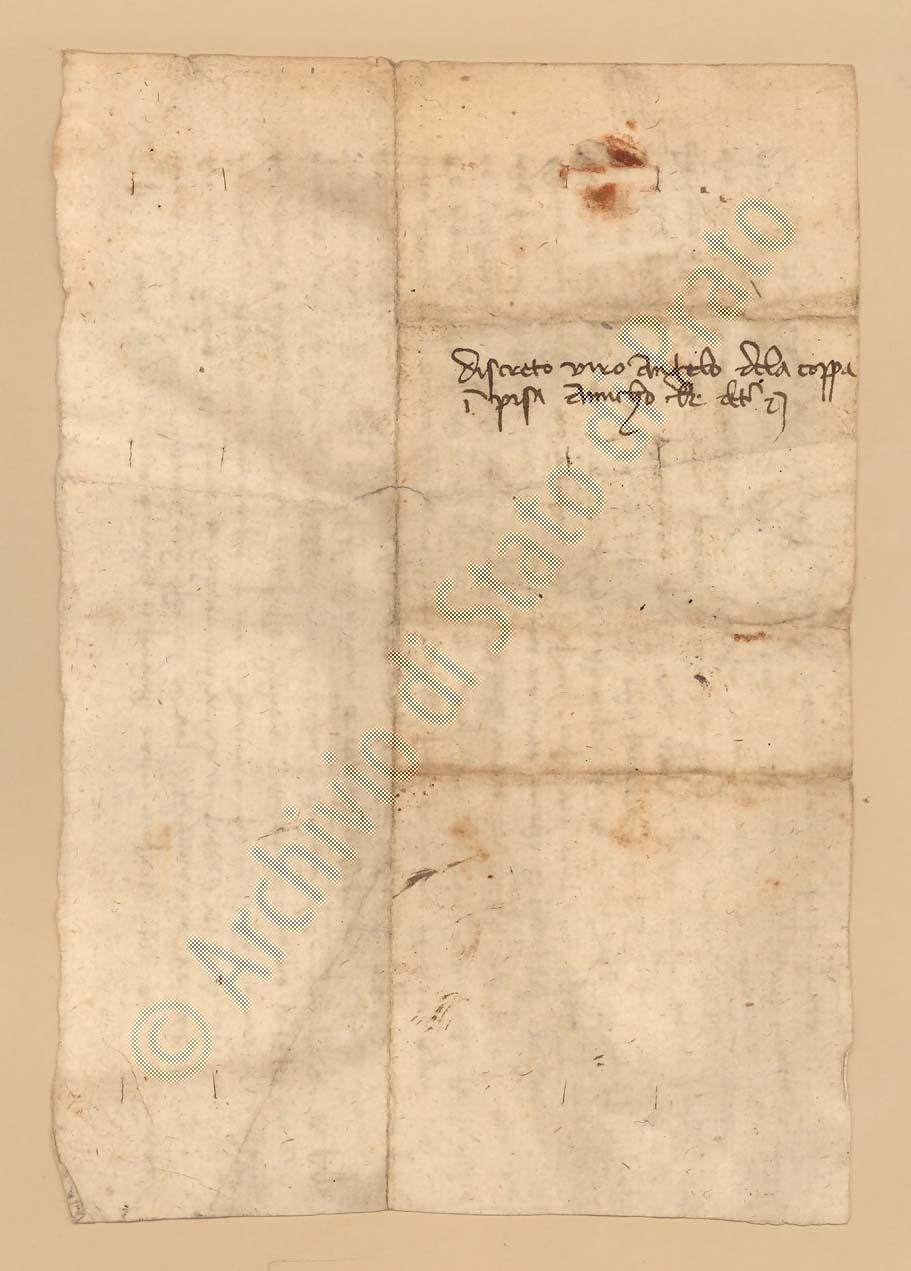 discreto viro Angelo dela coppa
in pisa
© Archivio di Stato di Prato